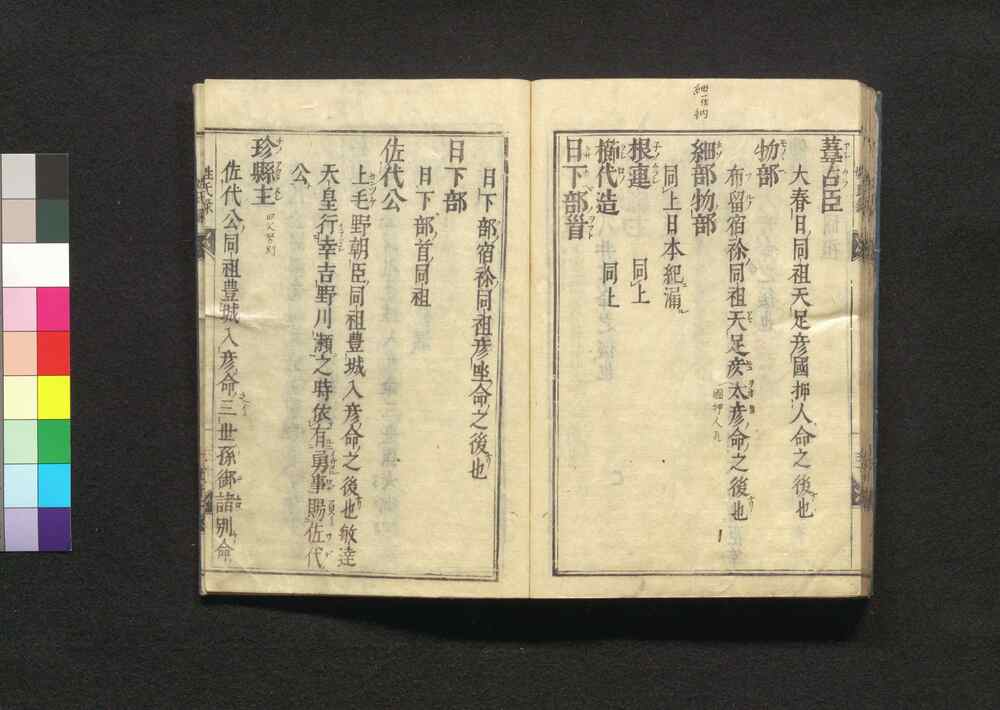 葦占臣
大春日同祖天足彦國押人命之後也
物部
布留宿祢同祖天足彦太彦命之後也
國押人
細部物部
同上日本紀漏
根連 同上
櫛代造 同上
日下部首
日下部宿祢同祖彦坐命之後也
日下部
日下部首同祖
佐代公
上毛野朝臣同祖豊城入彦命之後也敏達
天皇行幸吉野川瀬之時依有勇事賜佐代
公
珍縣主
佐代公同祖豊城入彦命三世孫御諸別命
姓氏录